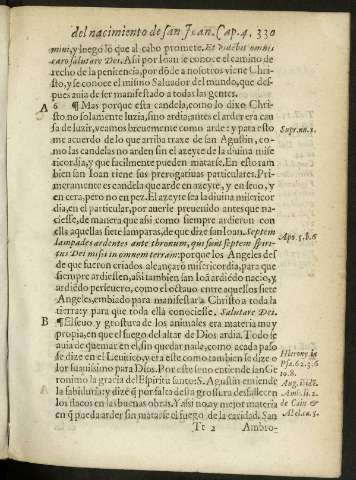 del nacimiento de san Juan. Cap. 4. 330
mini, y luego lo que al cabo promete. Et videbit omnis
caro salutare Dei. Assi por Ioan se conoce el camino de-
recho de la penitencia, por dōde a nosotros viene Chri-
sto, y se conoce el mismo Saluador del mundo, que des-
pues auia de ser manifestado a todas las gentes.
A
6 ¶ Mas porque esta candela, como lo dixo Chri-
sto no solamente luzia, sino ardia: antes el arder era cau-
sa de luzir, veamos breuemente como arde: y para esto
me acuerdo de lo que arriba traxe de san Agustin, co-
mo las candelas no arden sin el azeyte de la diuina mise
ricordia, y que facilmente pueden matarse. En esto tam
bien san Ioan tiene sus prerogatiuas particulares. Pri-
meramente es candela que arde en azeyte, y en seuo, y
en cera, pero no en pez. El azeyte sea la diuina misericor
dia, en el particular, por auerle preuenido antes que na-
ciesse, de manera que assi como siempre ardieron con
ella aquellas siete lamparas, de que dize san Ioan. Septem
lampades ardentes ante thronum, qui sunt septem spiri-
tus Dei missi in omnem terram: porque los Angeles des
de que fueron criados alcançaro misericordia, para que
siempre ardiessen, assi tambien san Ioā ardiēdo nacio, y
ardiēdo perseuero, como el octauo entre aquellos siete
Angeles, embiado para manifestar a Christo a toda la
tierra: y para que toda ella conociesse, Salutare Dei.
B ¶ El seuo, y grossura de los animales era materia muy
propia, en que el fuego del altar de Dios ardia. Todo se
auia de quemar en el, sin quedar nada, como a cada passo
se dize en el Leuitico, y era este como tambien se dize o
lor suauissimo para Dios. Por este seuo entiende san Ge
ronimo la gracia del Espiritu santo: S. Agustin entiende
la sabiduria: y dize q̄ por falta desta grossura desfallecen
los flacos en las buenas obras. Y assi no ay mejor materia
en q̄ pueda arder sin matarse el fuego de la caridad. San
Te 2 Ambro-
Supr. nu. 1.
Apo. 5. B. 6
Hierony. in
Psa. 62. & 6
10. 8.
Aug. ibidē.
Amb. li. 2.
de Cain &
Abel. ca. 5.